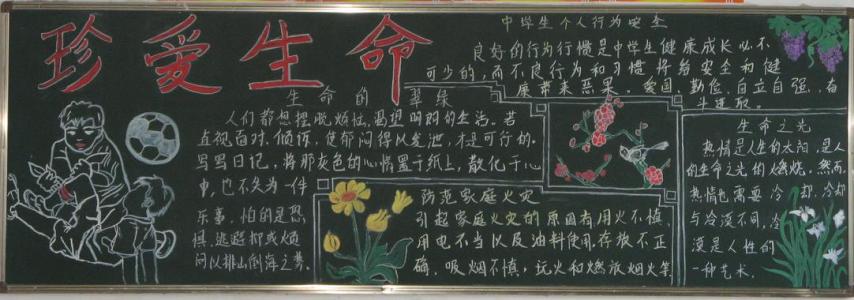 珍爱生命
生命的翠绿
人们都想摆脱烦恼,渴望明朗的生活。若
直视面对,倾诉,使郁闷得以发泄,才是可行的。
写写日记,将那灰色的心情置于纸上,散化于心
中,也不失为一件
乐事,怕的是恐
惧、逃避抑或烦
闷以排山倒海之势。
中学生个人行为安全
良好的行为行惯是中学生健康成长必不
可少的,而不良行为和习惯将给安全和健
康带来恶果。爱国、勤俭、自立自强、奋
斗进取。
防范家庭火灾
引起家庭火灾的原因有用火不慎,
用电不当以及油料使用,存放不正
确、吸烟不慎,玩火和燃放烟火等
生命之光
热情是人生的太阳,是人
的生命之光的燃烧。然而,
热情也需要冷却,冷却
与冷漠不同,冷
漠是人性的
一种艺术。